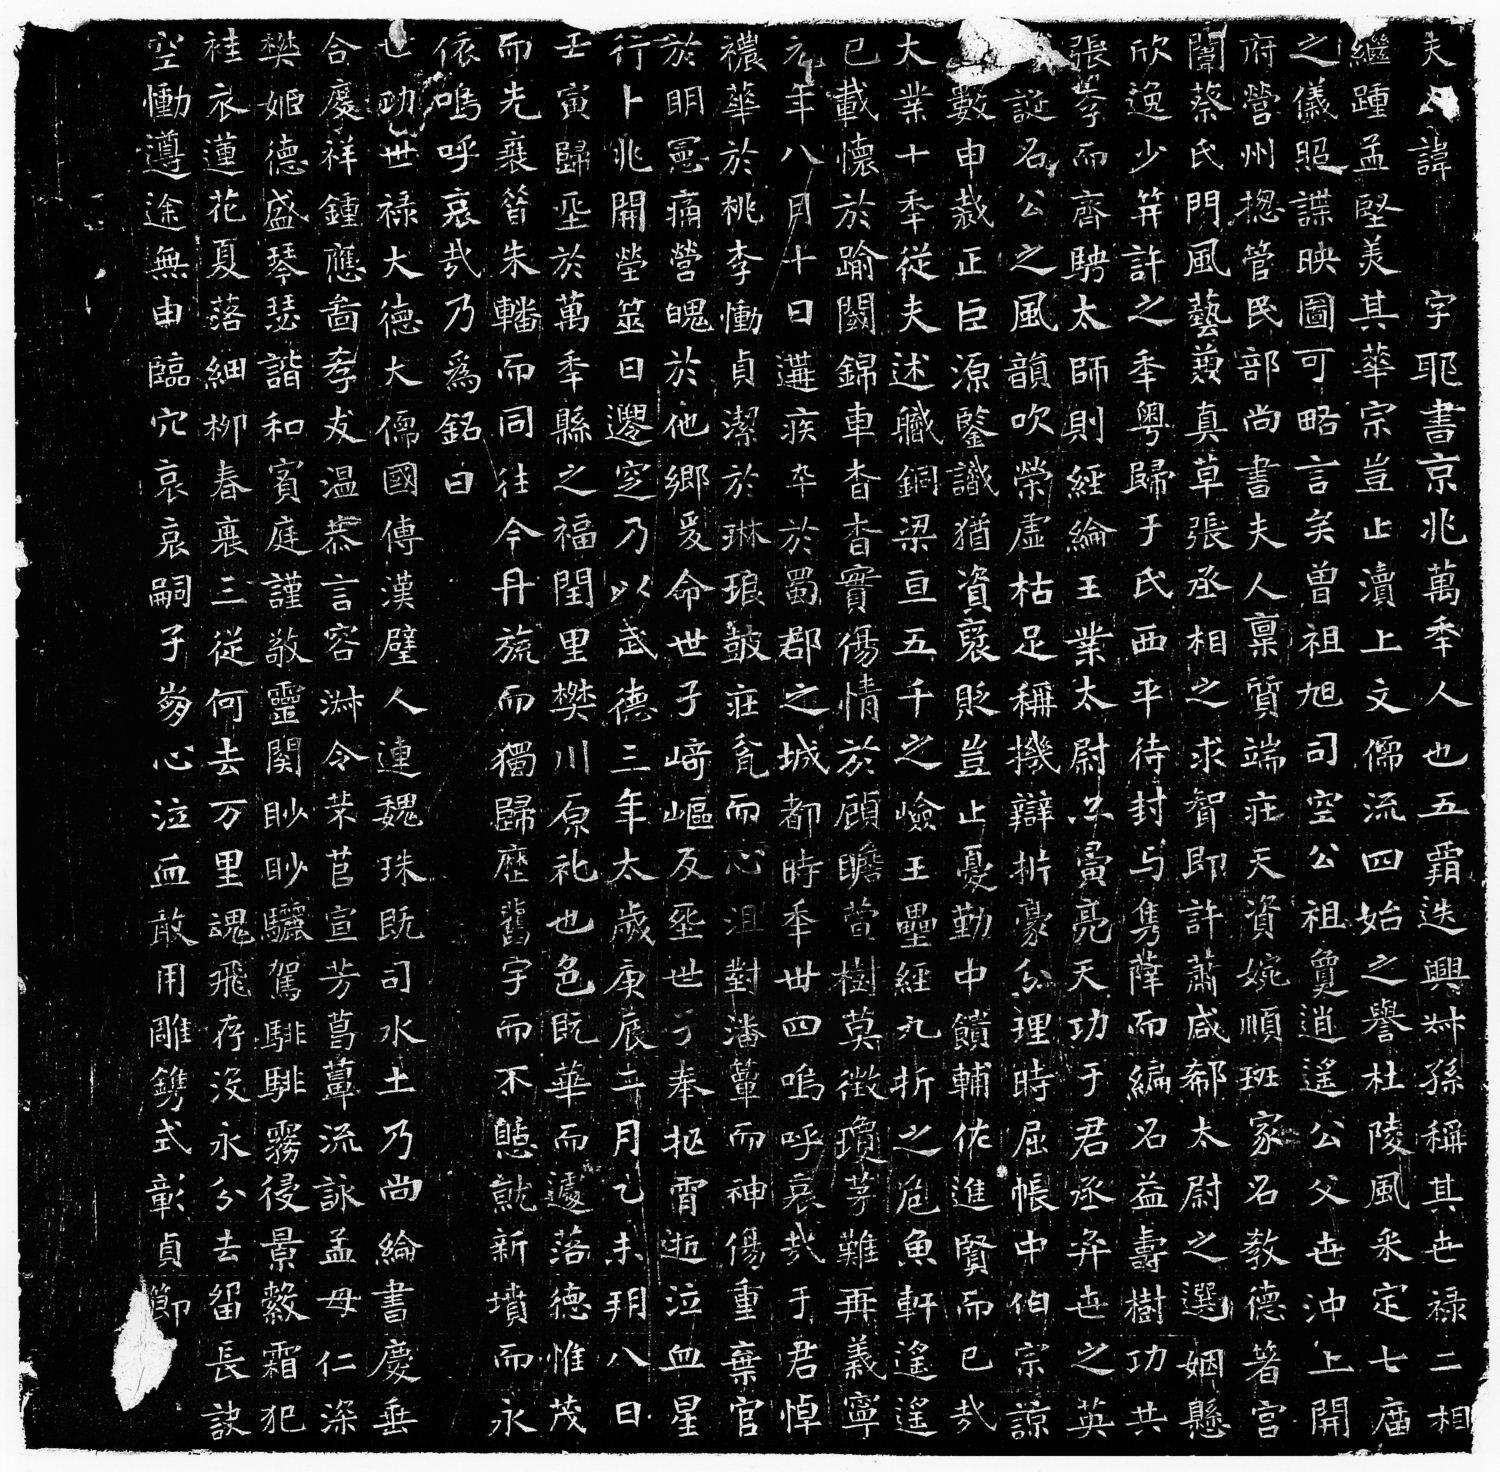 夫人諱　字耶書京兆萬秊人也五霸迭興卅孫稱其世禄二相
繼踵孟堅美其華宗豈止瀆上文儒流四始之譽杜陵風采定七廟
之儀照諜映圖可略言矣曽祖旭司空公祖敻逍遥公父世沖上開
府營州揔管民部尚書夫人禀質端莊天資婉順班家名教德著宫
闈蔡氏門風藝兼真草張丞相之求智即許蕭咸郗太尉之選姻懸
欣逸少笄許之秊粤歸于氏西平待封与雋葎而編名益壽樹功共
張李而齊騁太師則經綸王業太尉亮天功于君丞弈世之英
誕名公之風韻吹榮虚枯足稱機辯㭊豪分理時屈帳中伯宗諒
數申哉正臣源鑒識猶資裒貶豈止憂勤中饋輔佐進賢而已哉
大業十秊従夫述軄銅梁亘五千之嶮王壘經九折之危魚軒遥遥
已載懷於踰閾錦車杳杳實傷情於顧瞻萱樹莫徵瓊茅難再義寧
元年八月十日遘疾卒於蜀郡之城都時秊卌四嗚呼哀哉于君悼
禯華於桃李慟貞潔於琳琅鼓莊瓮而心沮對潘簟而神傷重棄官
於明憲痛營魄於他鄉爰命世子崎嶇反塟世子奉柩霄逝泣血星
行卜兆開塋筮日遷窆乃以武德三年太歲庚辰二月乙未朔八日
壬寅歸垩於萬秊縣之福閏里樊川原礼也色既華而遽落德惟茂
而先衰昔朱轓而同往今丹旐而獨歸歷舊宇而不憇就新墳而永
依嗚呼哀哉乃爲銘曰
世功世禄大德大儒國傅漢璧人連魏珠既司水土乃尚綸書慶垂
合慶祥鍾應啚孝友温恭言容淋令苿苢宣芳菖蕇流詠孟母仁深
樊姬德盛琴瑟諧和賓庭謹敬靈関眇眇驪駕騑騑霧侵景縠霜犯
袿衣蓮花夏落細柳春衰三従何去万里魂飛存没永分去留長訣
空慟遵途無由臨穴哀哀嗣子㷌心泣血敢用雕鎸式彰貞節